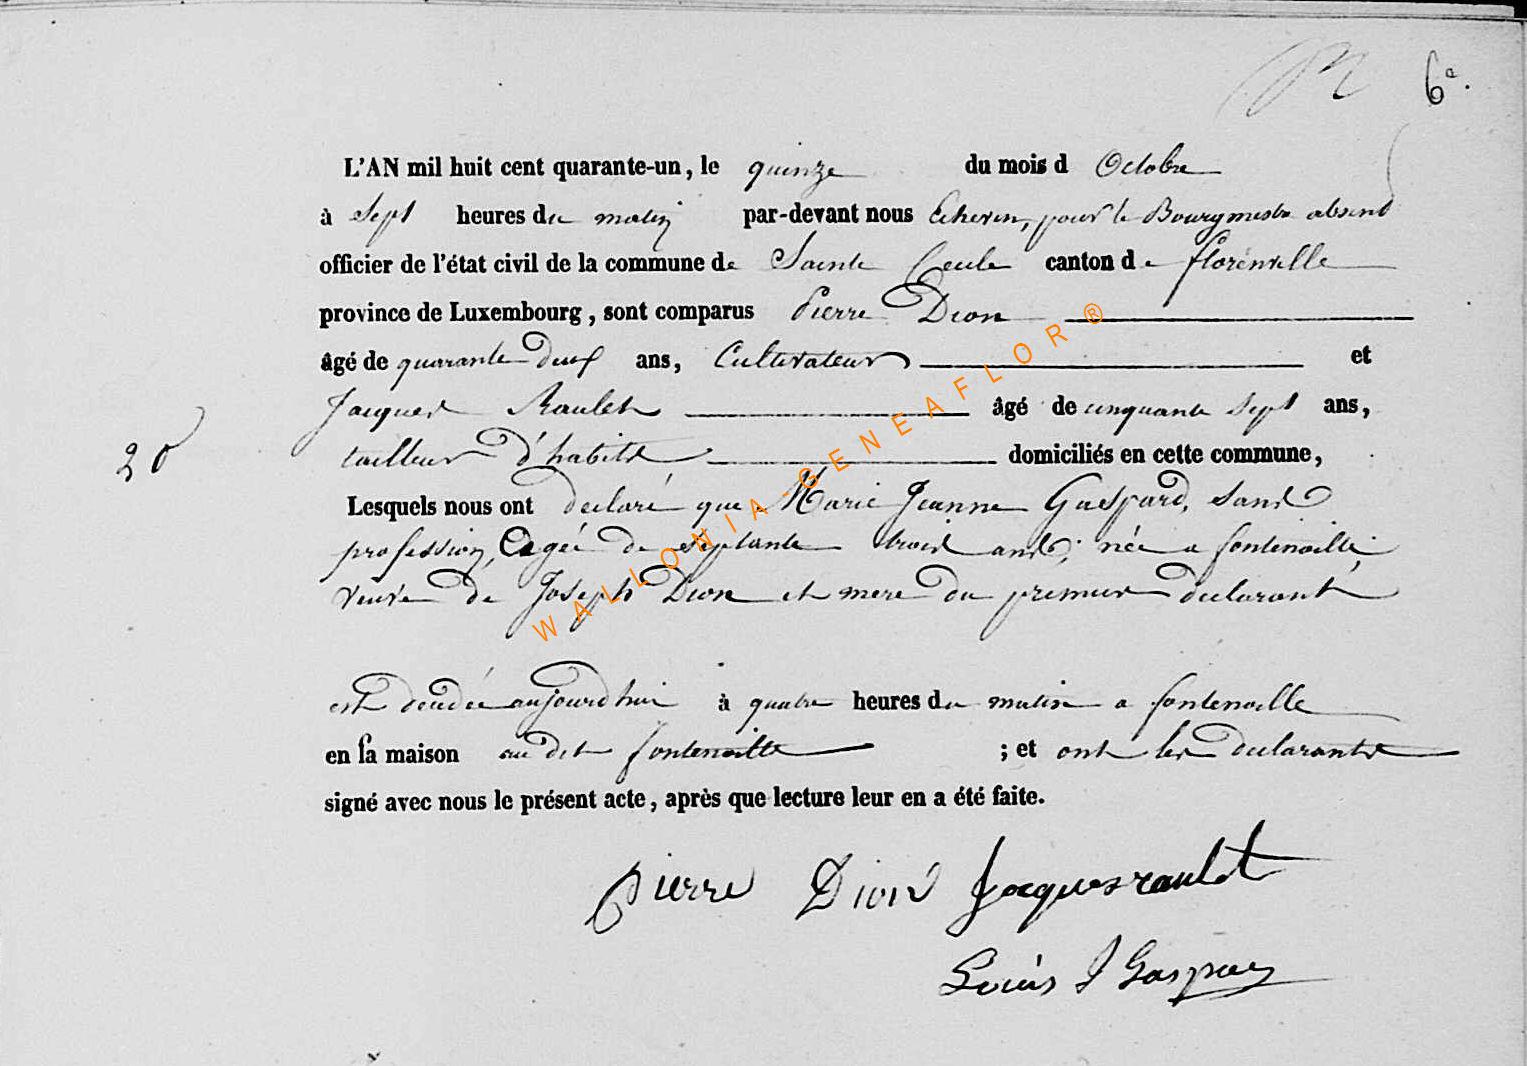 6e.
L'AN mil huit cent quarante-un, le quinze du mois d Octobre
à Sept heures du matin par-devant nous Echevin, pour le Bourgmestre absent
officier de l'état civil de la commune de Sainte Cecile canton de florenville
province de Luxembourg, sont comparus Pierre Dion
âgé de quarante deux ans, Cultivateur et
Jacques Raulet âgé de cinquante Sept ans,
20
tailleur d'habits domiciliés en cette commune,
Lesquels nous ont declaré que Marie Jeanne Gaspard, sans
profession, agée de septante trois ans, née a fontenoille,
veuve de Joseph Dion et mere du premier declarant,
est décédée aujourd'hui à quatre heures du matin a fontenoille
en sa maison au dit fontenoille ; et ont les declarants
signé avec nous le présent acte, après que lecture leur en a été faite.
pierre Dion Jacques raulet
Louis J Gaspard
WALLONIA-GENEAFLOR ®